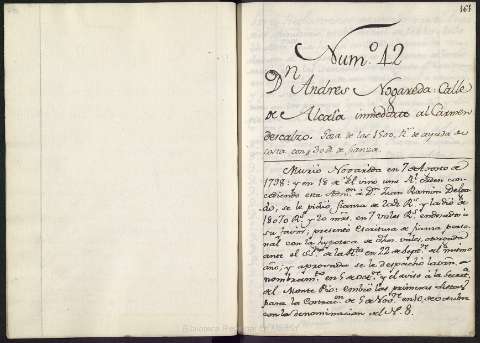 161
Num.º 42
Dn Andres Nogareda: Calle
de Alcala inmediato al Carmen
descalzo. Goza de los 1500 Rs de ayuda de
costa con de fianza.
Murió Nogareda en 7 de Agosto de
1798: y en 18 de vino una Rl orden con-
cediendo esta Admon á Dn Juan Ramón Delga-
do, se le pidió fianza de Rs y la dió de
18070 Rs y 20 mrs. en 7 vales Rs endosados á
su favor; presentó Escritura de fianza perso-
nal con la hypoteca de dhos vales, otorgada
ante el de la en 22 de Septe del mismo
año; y aprovada se le despachó
nombramto en 5 de y el aviso á la Secreta
del Monte Pio: embió las primeras listas
para la de 5 de Nove en 10 de octubre
con la denominacion del Nº 8.
Biblioteca Regional de Madrid